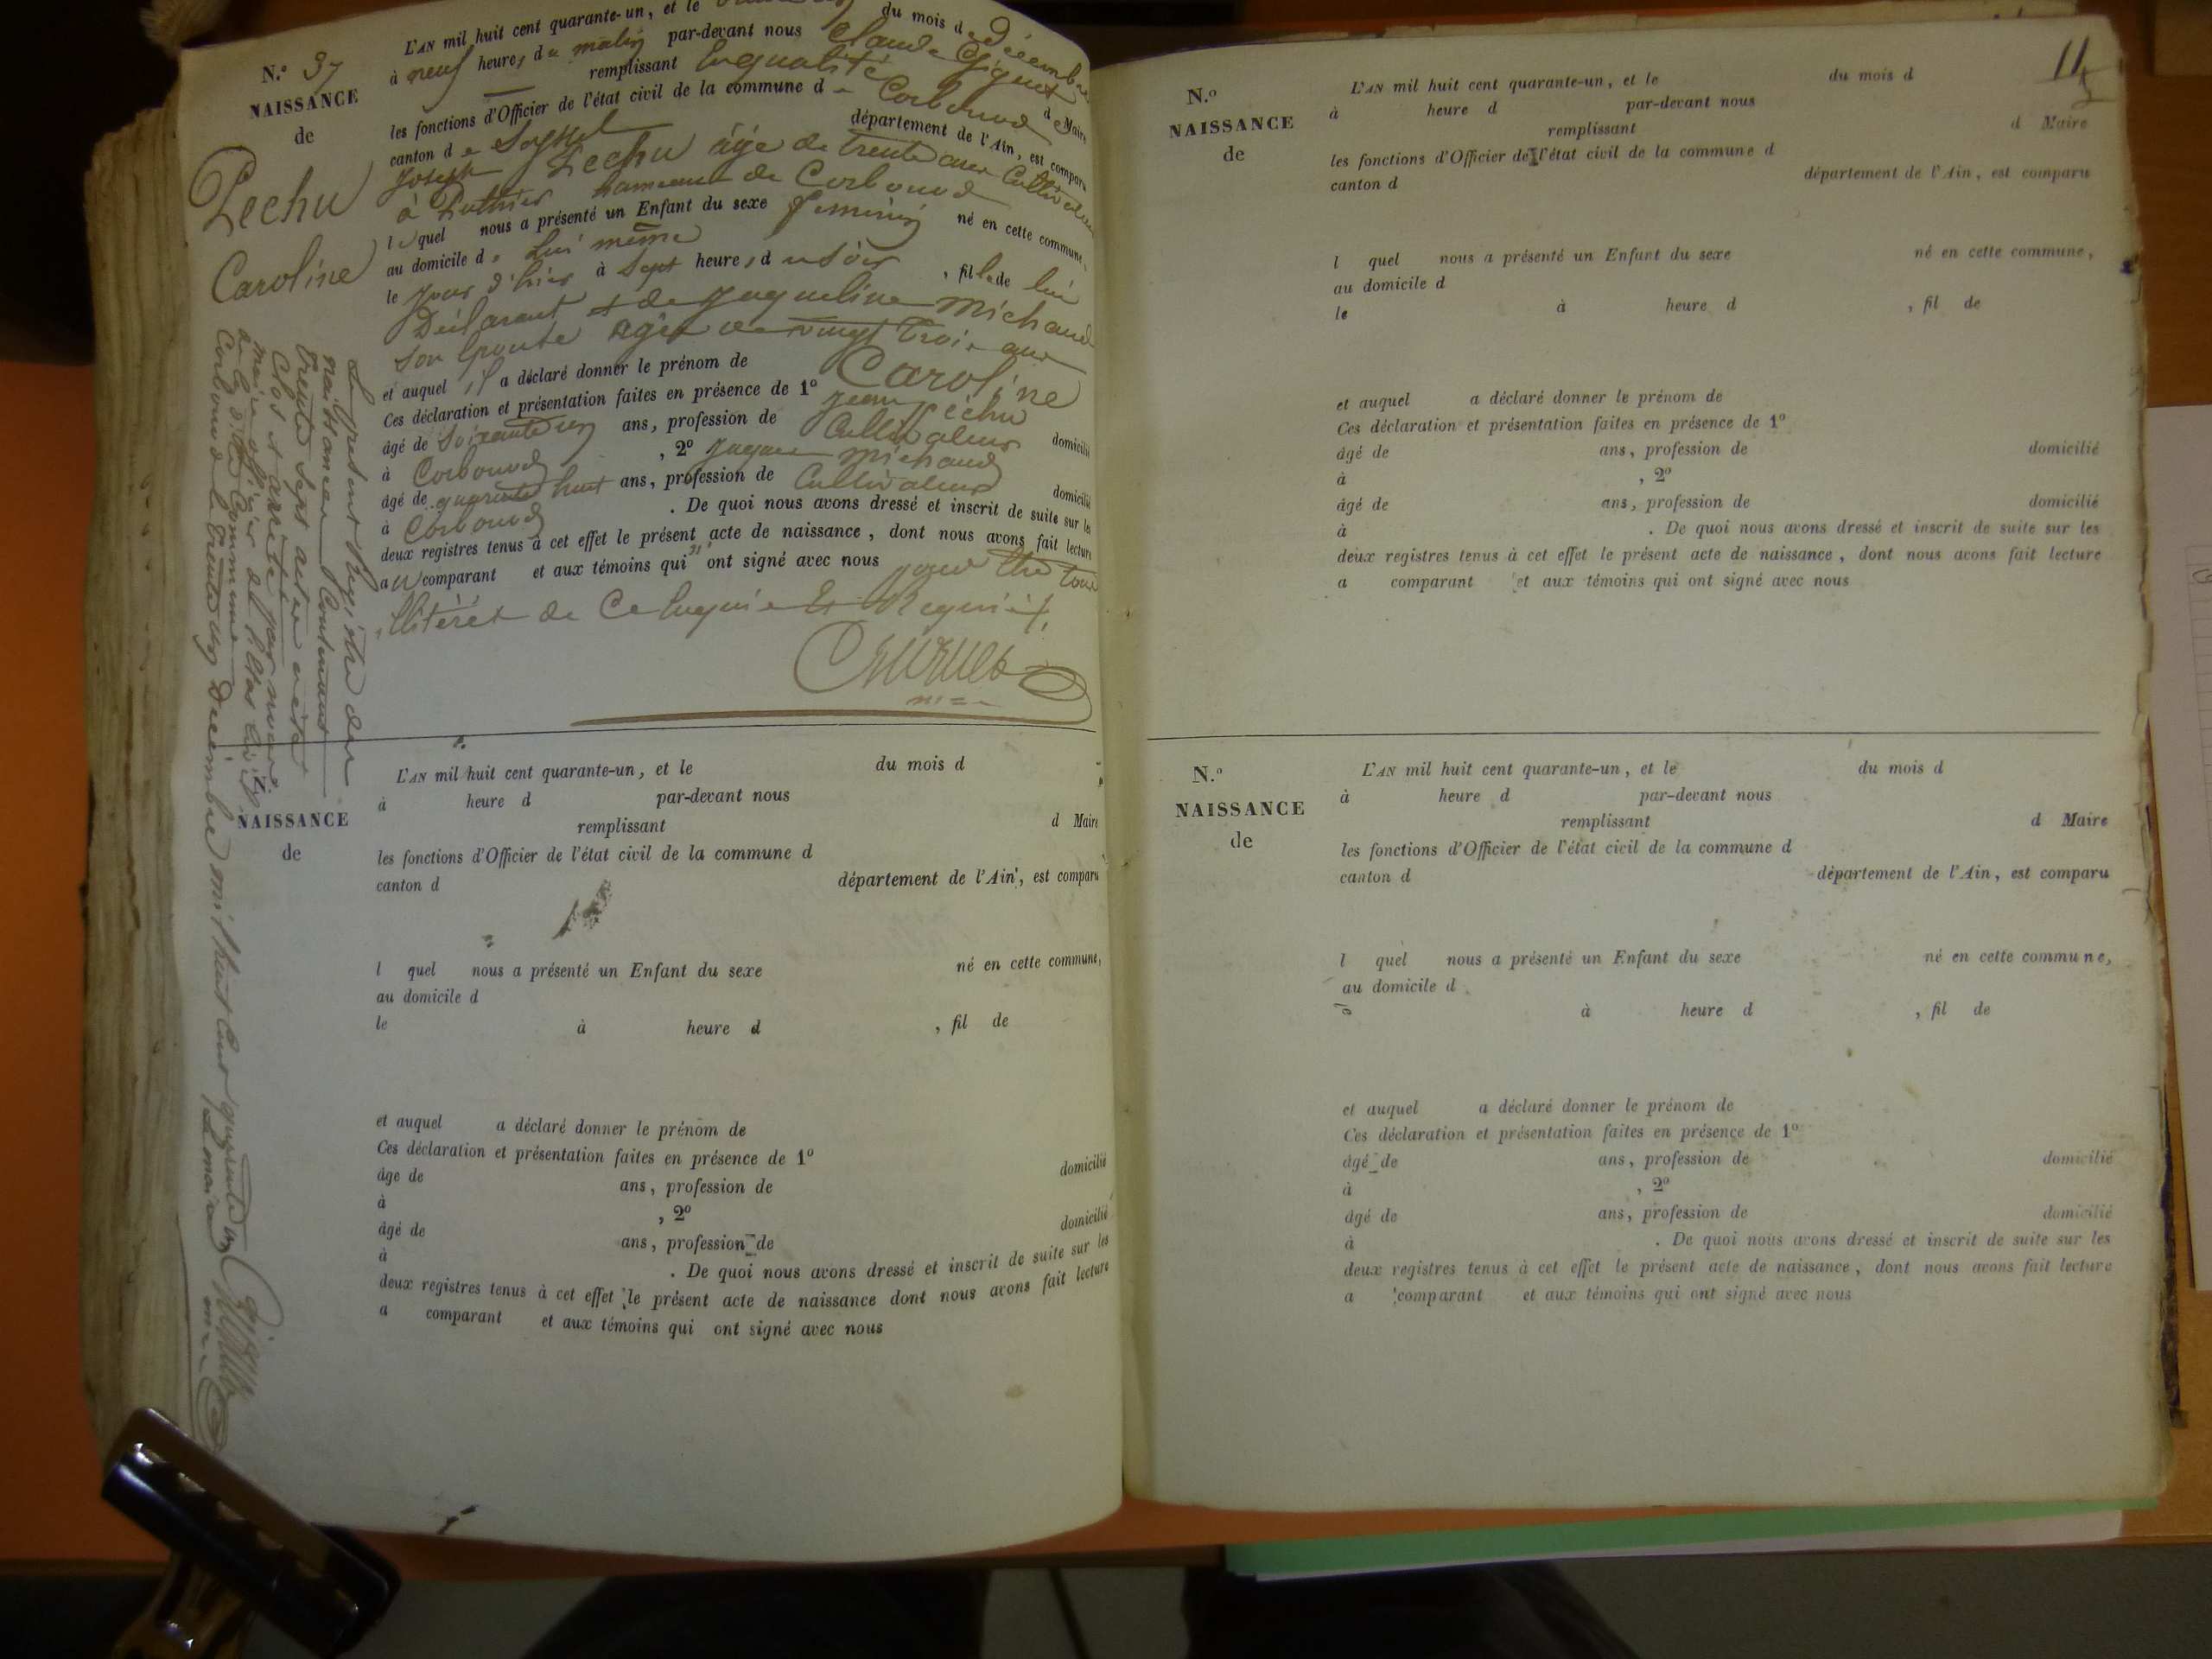 N.o 37
NAISSANCE
de
Pechu
Caroline
L'AN mil huit cent quarante-un, et le du mois de Décembre
à neuf heures du matin par-devant nous Claude Gignet
remplissant en qualité de Maire
les fonctions d'Officier de l'état civil de la commune de Corbonod
canton de Seyssel département de l'Ain, est comparu
Joseph Pechu âgé de trente ans Cultivateur
à hameau de Corbonod
lequel nous a présenté un Enfant du sexe féminin né en cette commune,
au domicile de lui même
le jour d'hier à sept heures du soir, fille de lui
Déclarant et de Jaqueline Michaud
son épouse agée de vingt trois ans
et auquel il a déclaré donner le prénom de Caroline
Ces déclaration et présentation faites en présence de 1o Jean Pechu
âgé de soixante un ans, profession de Cultivateur domicilié
à Corbonod, 2o Jaques Michaud
âgé de quarante huit ans, profession de Cultivateur domicilié
à Corbonod. De quoi nous avons dressé et inscrit de suite sur les
deux registres tenus à cet effet le présent acte de naissance, dont nous avons fait lecture
au comparant et aux témoins qui n'ont signé avec nous pour être tous
illiteret de ce enquis et Requis
Le présent Registre des
naissances Contenant
trente sept actes a été
Clos et arrêté par nous
maire officier de l'état civil
de la dite Commune
Corbonod le trente un Décembre mil huit cent quarante un
Le maire
L'AN mil huit cent quarante-un, et le du mois d
à heure d par-devant nous
remplissant d Maire
NAISSANCE
de
les fonctions d'Officier de l'état civil de la commune d
canton d département de l'Ain, est comparu
l quel nous a présenté un Enfant du sexe né en cette commune,
au domicile d
le à heure d , fil de
et auquel a déclaré donner le prénom de
Ces déclaration et présentation faites en présence de 1o
âge de ans, profession de domicilié
à , 2o
âgé de ans, profession de domicilié
à . De quoi nous avons dressé et inscrit de suite sur les
deux registres tenus à cet effet le présent acte de naissance dont nous avons fait lecture
a comparant et aux témoins qui ont signé avec nous
11
N.o
NAISSANCE
de
L'AN mil huit cent quarante-un, et le du mois d
à heure d par-devant nous
remplissant d Maire
les fonctions d'Officier de l'état civil de la commune d
canton d département de l'Ain, est comparu
l quel nous a présenté un Enfant du sexe né en cette commune,
au domicile d
le à heure d , fil de
et auquel a déclaré donner le prénom de
Ces déclaration et présentation faites en présence de 1o
âgé de ans, profession de domicilié
à , 2o
âgé de ans, profession de domicilié
à . De quoi nous avons dressé et inscrit de suite sur les
deux registres tenus à cet effet le présent acte de naissance, dont nous avons fait lecture
a comparant et aux témoins qui ont signé avec nous
N.o
NAISSANCE
de
L'AN mil huit cent quarante-un, et le du mois d
à heure d par-devant nous
remplissant d Maire
les fonctions d'Officier de l'état civil de la commune d
canton d département de l'Ain, est comparu
l quel nous a présenté un Enfant du sexe né en cette commune,
au domicile d
le à heure d , fil de
et auquel a déclaré donner le prénom de
Ces déclaration et présentation faites en présence de 1o
âgé de ans, profession de domicilié
à , 2o
âgé de ans, profession de domicilié
à . De quoi nous avons dressé et inscrit de suite sur les
deux registres tenus à cet effet le présent acte de naissance, dont nous avons fait lecture
a comparant et aux témoins qui ont signé avec nous